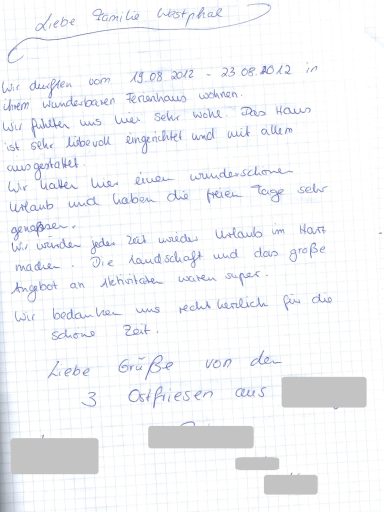 Liebe Familie Westphal
Wir durften vom 19.08.2012 - 23.08.2012 in
ihrem wunderbaren Ferienhaus wohnen.
Wir fühlten uns hier sehr wohl. Das Haus
ist sehr liebevoll eingerichtet und mit allem
ausgestattet.
Wir hatten hier einen wunderschönen
Urlaub und haben die freien Tage sehr
genossen.
Wir würden jeder Zeit wieder Urlaub im Harz
machen. Die Landschaft und das große
Angebot an Aktivitäten waren super.
Wir bedanken uns recht herzlich für die
schöne Zeit.
Liebe Grüße von den
3 Ostfriesen aus